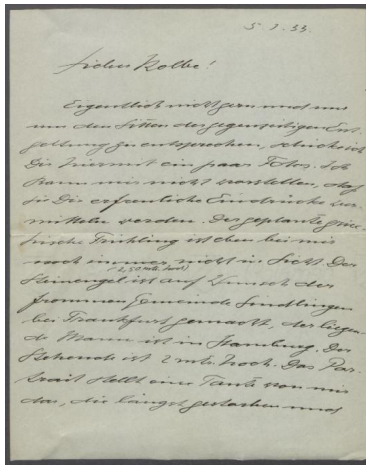 5. 3. 33.
Lieber Kolbe!
Eigentlich nicht gern und nur
um den Sitten der gegenseitigen
zu entsprechen, schicke ich
Dir hiermit ein paar Fotos. Ich
kann mir nicht vorstellen, daß
sie Dir erfreuliche Eindrücke ver-
mitteln werden. Der geplante grie-
chische Frühling ist eben bei mir
noch immer nicht in Sicht. Der
(2,50 mtr. hoch)
Steinengel ist auf Wunsch der
frommen Gemeinde Sindlingen
bei Frankfurt gemacht, der liegen-
de Mann ist in Hamburg. Der
Stehende ist 2 mtr. hoch. Das Por-
trait stellt eine Tante von mir
dar, die längst gestorben und